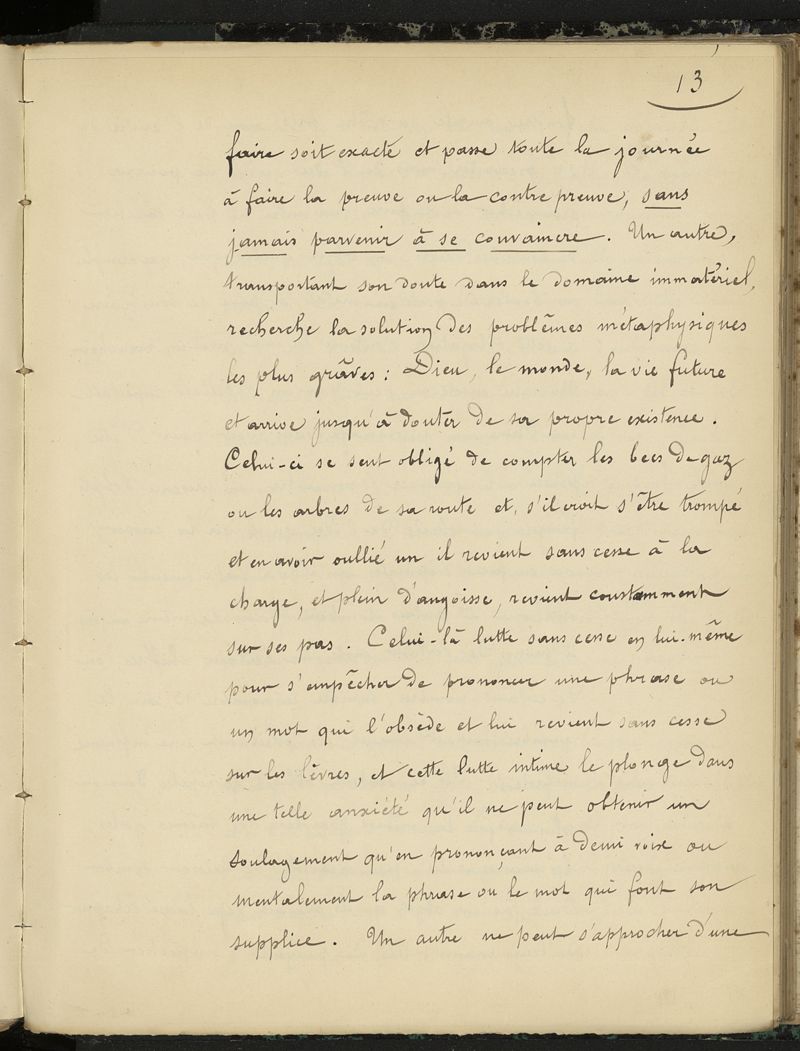 13
faire soit exacte et passe toute la journée
à faire la preuve ou la contre preuve, sans
jamais parvenir à se convaincre. Un autre,
transportant son doute dans le domaine immatériel,
recherche la solution des problêmes métaphysiques
les plus grâves : Dieu, le monde, la vie future
et arrive jusqu'à douter de sa propre existence.
Celui-ci se sent obligé de compter les becs de gaz
ou les arbres de sa route et, s'il croit s'être trompé
et en avoir oullié un il revient sans cesse à la
charge, et plein d'angoisse, revient constamment
sur ses pas. Celui-là lutte sans cesse en lui-même
pour s'empêcher de prononcer une phrase ou
un mot qui l'obsède et lui revient sans cesse
sur les lèvres, et cette lutte intime le plonge dans
une telle anxiété qu'il ne peut obtenir un
soulagement qu'en prononçant à demi voix ou
mentalement la phrase ou le mot qui font son
supplice. Un autre ne peut s'approcher d'une